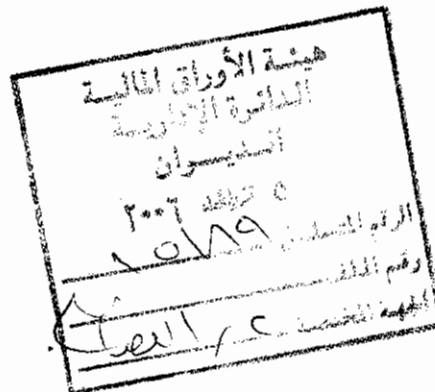 هيئة الأوراق المالية
الدائرة الإدارية
الديوان
٥ ٢٠٠٦
الرقم المتسلسل ١٥٧٨٩
رقم الملف
الجهة المختصة